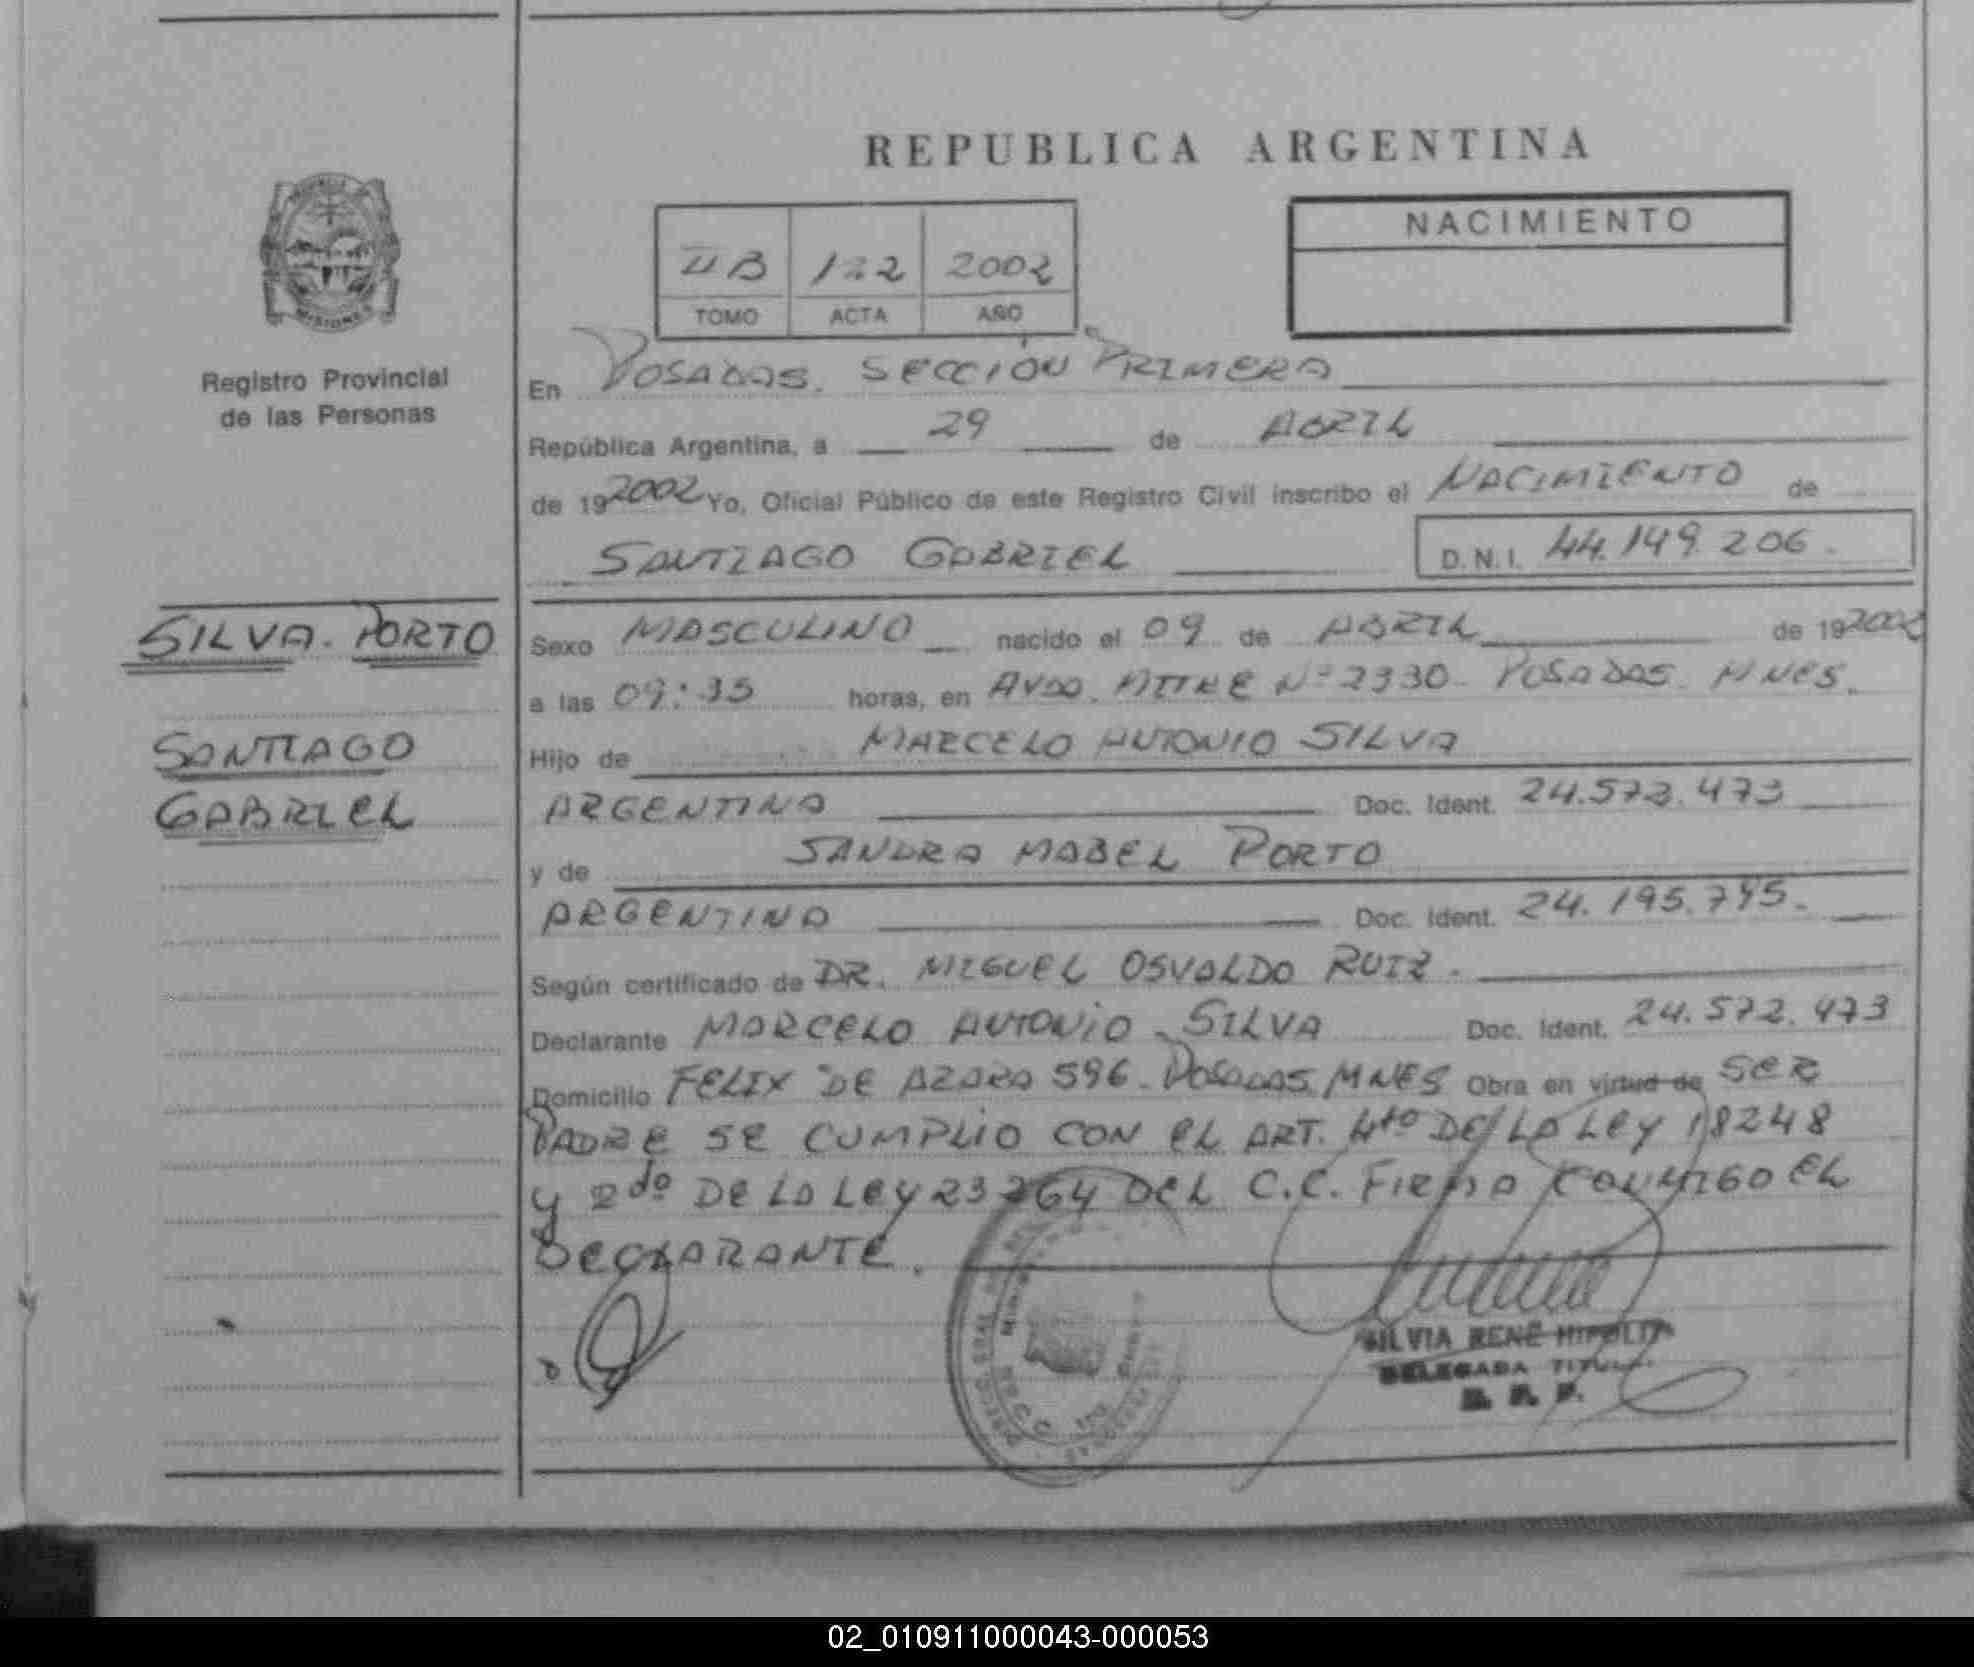 REPUBLICA ARGENTINA
NACIMIENTO
II B 122 2002
TOMO ACTA AÑO
MISIONES
Registro Provincial
de las Personas
En POSADAS. SECCIÓN PRIMERA
República Argentina, a 29 de ABRIL
de 192002 Yo, Oficial Público de este Registro Civil inscribo el NACIMIENTO de
SANTIAGO GABRIEL D.N.I. 44.149.206.
SILVA. PORTO
SANTIAGO
GABRIEL
Sexo MASCULINO nacido el 09 de ABRIL de 192002
a las 09:35 horas, en AVDA. MITRE Nº 2330. POSADAS. MNES.
Hijo de MARCELO ANTONIO SILVA
ARGENTINA Doc. Ident. 24.572.473
y de SANDRA MABEL PORTO
ARGENTINA Doc. Ident. 24.195.745.
Según certificado de DR. MIGUEL OSVALDO RUIZ.
Declarante MARCELO ANTONIO SILVA Doc. Ident. 24.572.473
Domicilio FELIX DE AZARA 596. POSADAS. MNES Obra en virtud de SER
PADRE SE CUMPLIO CON EL ART. 4to DE LA LEY 18248
Y 2do DE LA LEY 23264 DEL C.C. FIRMA CONMIGO EL
DECLARANTE.
SILVIA RENÉ HIPOLIT
DELEGADA TITULAR
R. P. P.
02_010911000043-000053